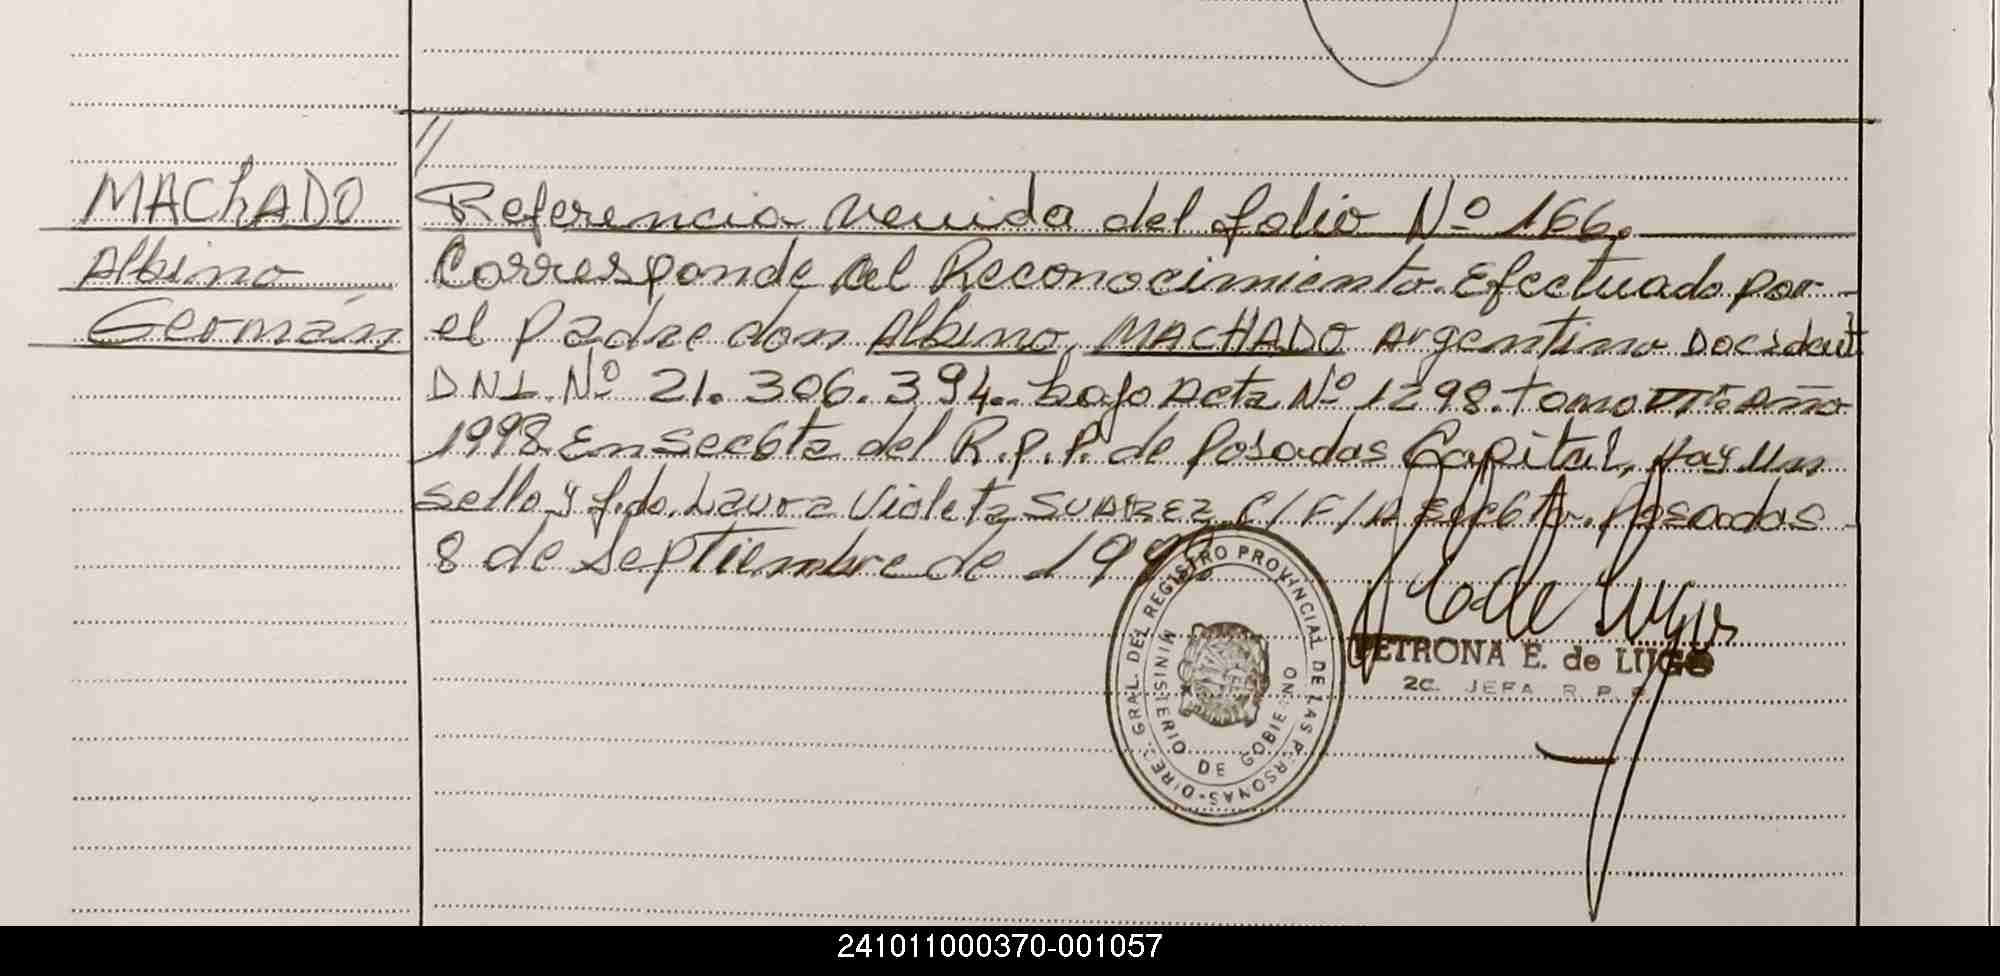 //
MAChADO
Albino
Germán
Referencia venida del folio Nº 166.
Corresponde al Reconocimiento. Efectuado por
el padre don Albino MACHADO Argentino Doc. ident
DNI. Nº 21.306.394. bajo Acta Nº 1298. tomo Año
1998. En Sec 6ta del R.P.P. de Posadas Capital, Hay Un
sello y fdo. Laura Violeta SUAREZ C/F/ Sec 6ta. Posadas
8 de Septiembre de 1998.
DIREC. GRAL. DEL REGISTRO PROVINCIAL DE LAS PERSONAS
MINISTERIO DE GOBIERNO
PETRONA E. de LUGO
2C. JEFA R. P. P.
241011000370-001057